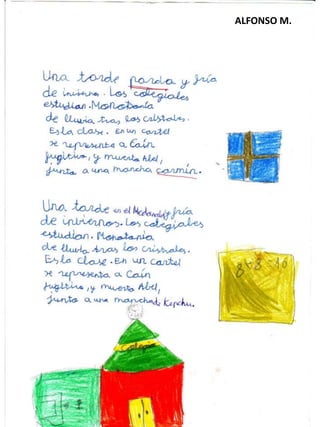 ALFONSO M.
Una tarde parda y fría
de invierno. Los colegiales
estudian. Monotonía
de lluvia tras los cristales.
Es la clase. En un cartel
se representa a Caín
fugitivo, y muerto Abel,
junto a una mancha carmín.
Una tarde en el Mcdonald's fría
de inviernos. Los colegiales
estudian. Monotonía
de lluvia tras los cristales.
Es la clase. En un cartel
se representa a Caín
fugitivo, y muerto Abel,
junto a una mancha de Kepchu.
8+8=16